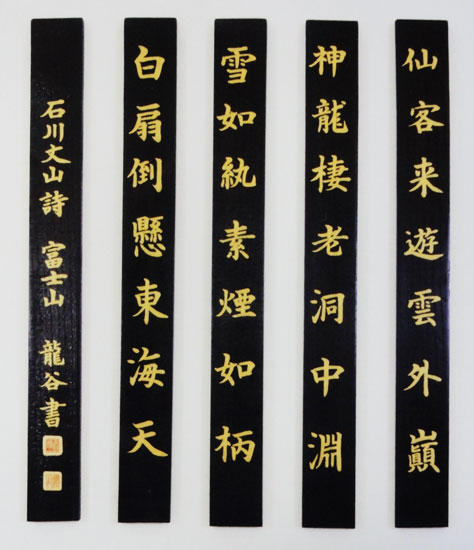 仙客来遊雲外巓
神龍棲老洞中淵
雪如紈素煙如柄
白扇倒懸東海天
石川丈山詩 富士山 龍谷書